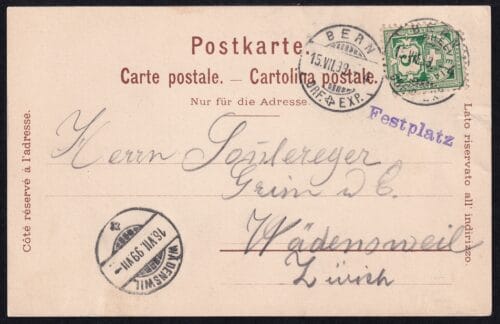 Postkarte.
Carte postale. — Cartolina postale.
Nur für die Adresse.
BERN
15.VII.99
BRF. EXP.
5
Festplatz
Côté réservé à l'adresse.
Lato riservato all' indirizzo.
Herrn
Wädensweil
Zürich
WÄDENSWIL
16.VII.99.VII